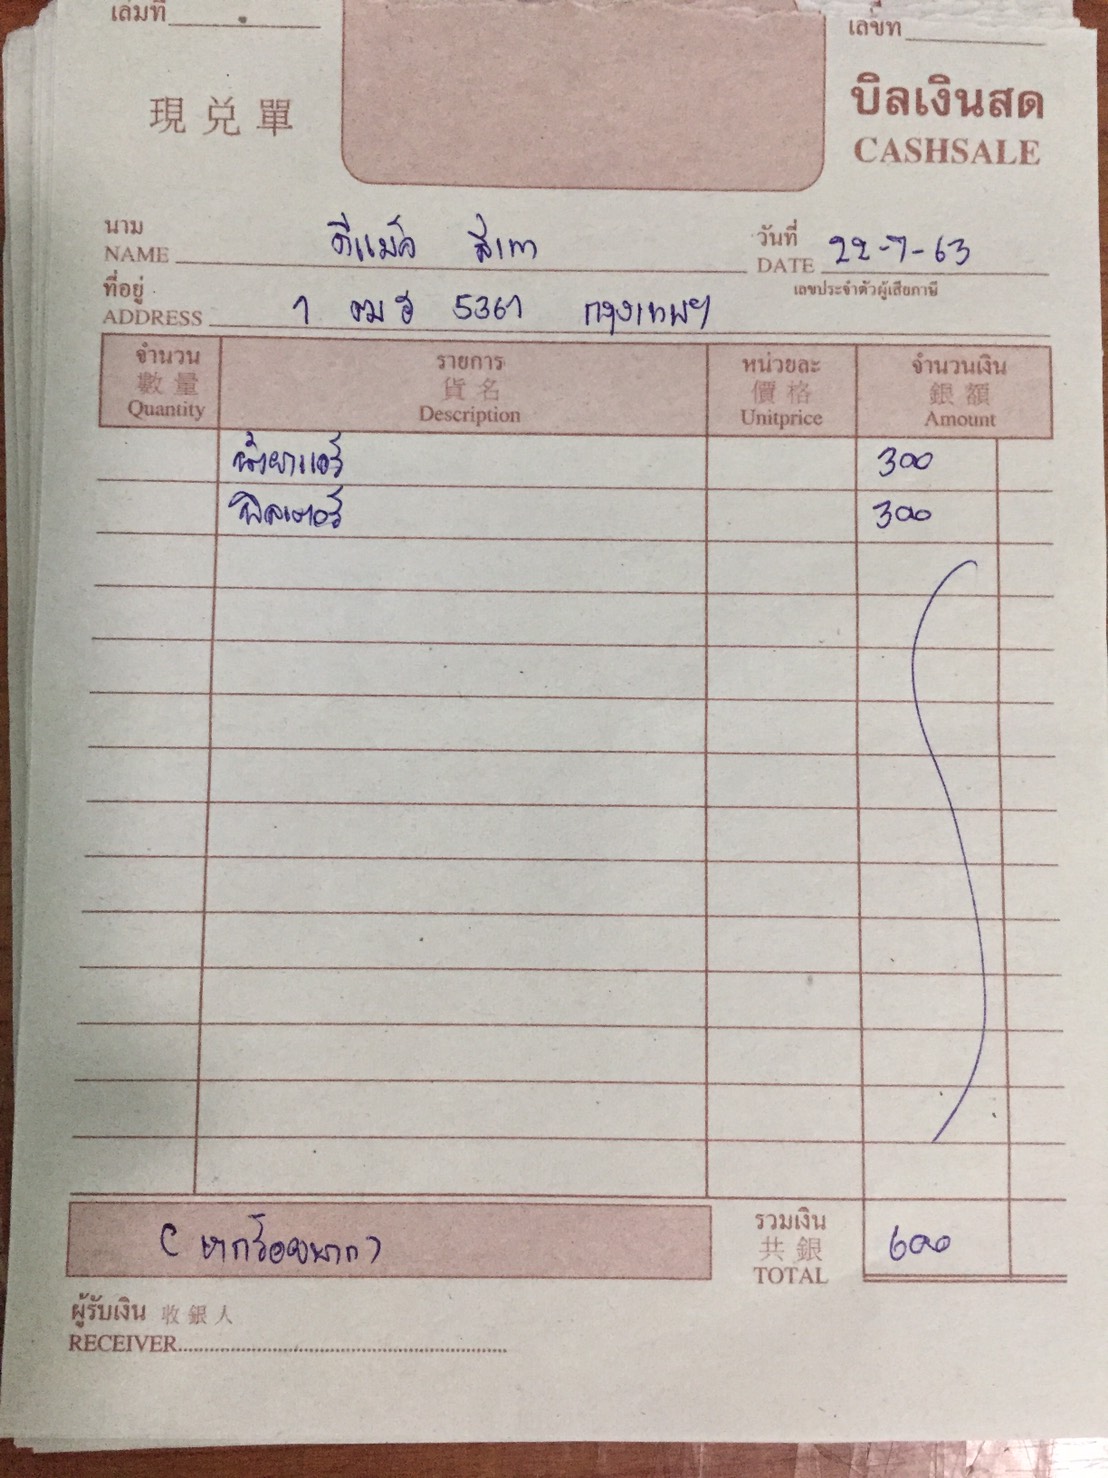 เล่มที่
เลขที่
現兑單
บิลเงินสด
CASHSALE
นาม
NAME ดีแม็ค สีเทา
วันที่
DATE 22-7-63
ที่อยู่
ADDRESS 1 ฒฐ 5361 กรุงเทพฯ
เลขประจำตัวผู้เสียภาษี
จำนวน รายการ หน่วยละ จำนวนเงิน
數量 貨名 價格 銀額
Quantity Description Unitprice Amount
น้ำยาแอร์ 300
ฟิลเตอร์ 300
(หกร้อยบาท)
รวมเงิน
共銀
TOTAL 600
ผู้รับเงิน 收銀人
RECEIVER